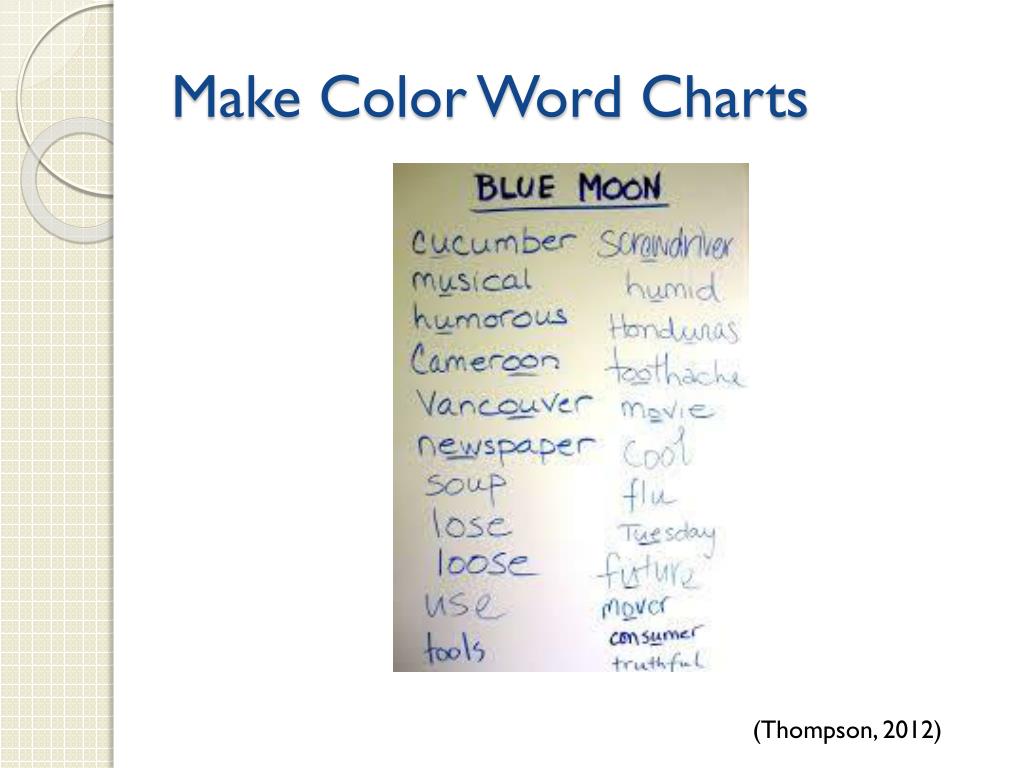 Make Color Word Charts
BLUE MOON
cucumber
musical
humorous
Cameroon
Vancouver
newspaper
soup
lose
loose
use
tools
scrawdriver
humid
Honduras
toothache
movie
cool
flu
Tuesday
future
mover
consumer
truthful
(Thompson, 2012)